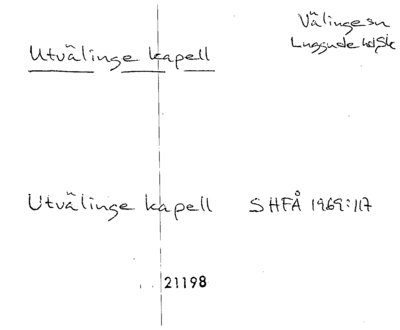 Välinge sn
Luggude hd, Sk
Utvälinge kapell
Utvälinge kapell SHFÅ 1969:117
21198